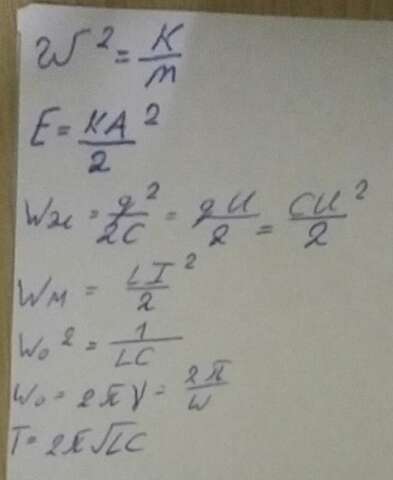 W² = K/m
E = KA²/2
Wэл = q²/2C = qU/2 = CU²/2
Wм = LI²/2
W₀² = 1/LC
W₀ = 2πν = 2π/W
T = 2π√LC